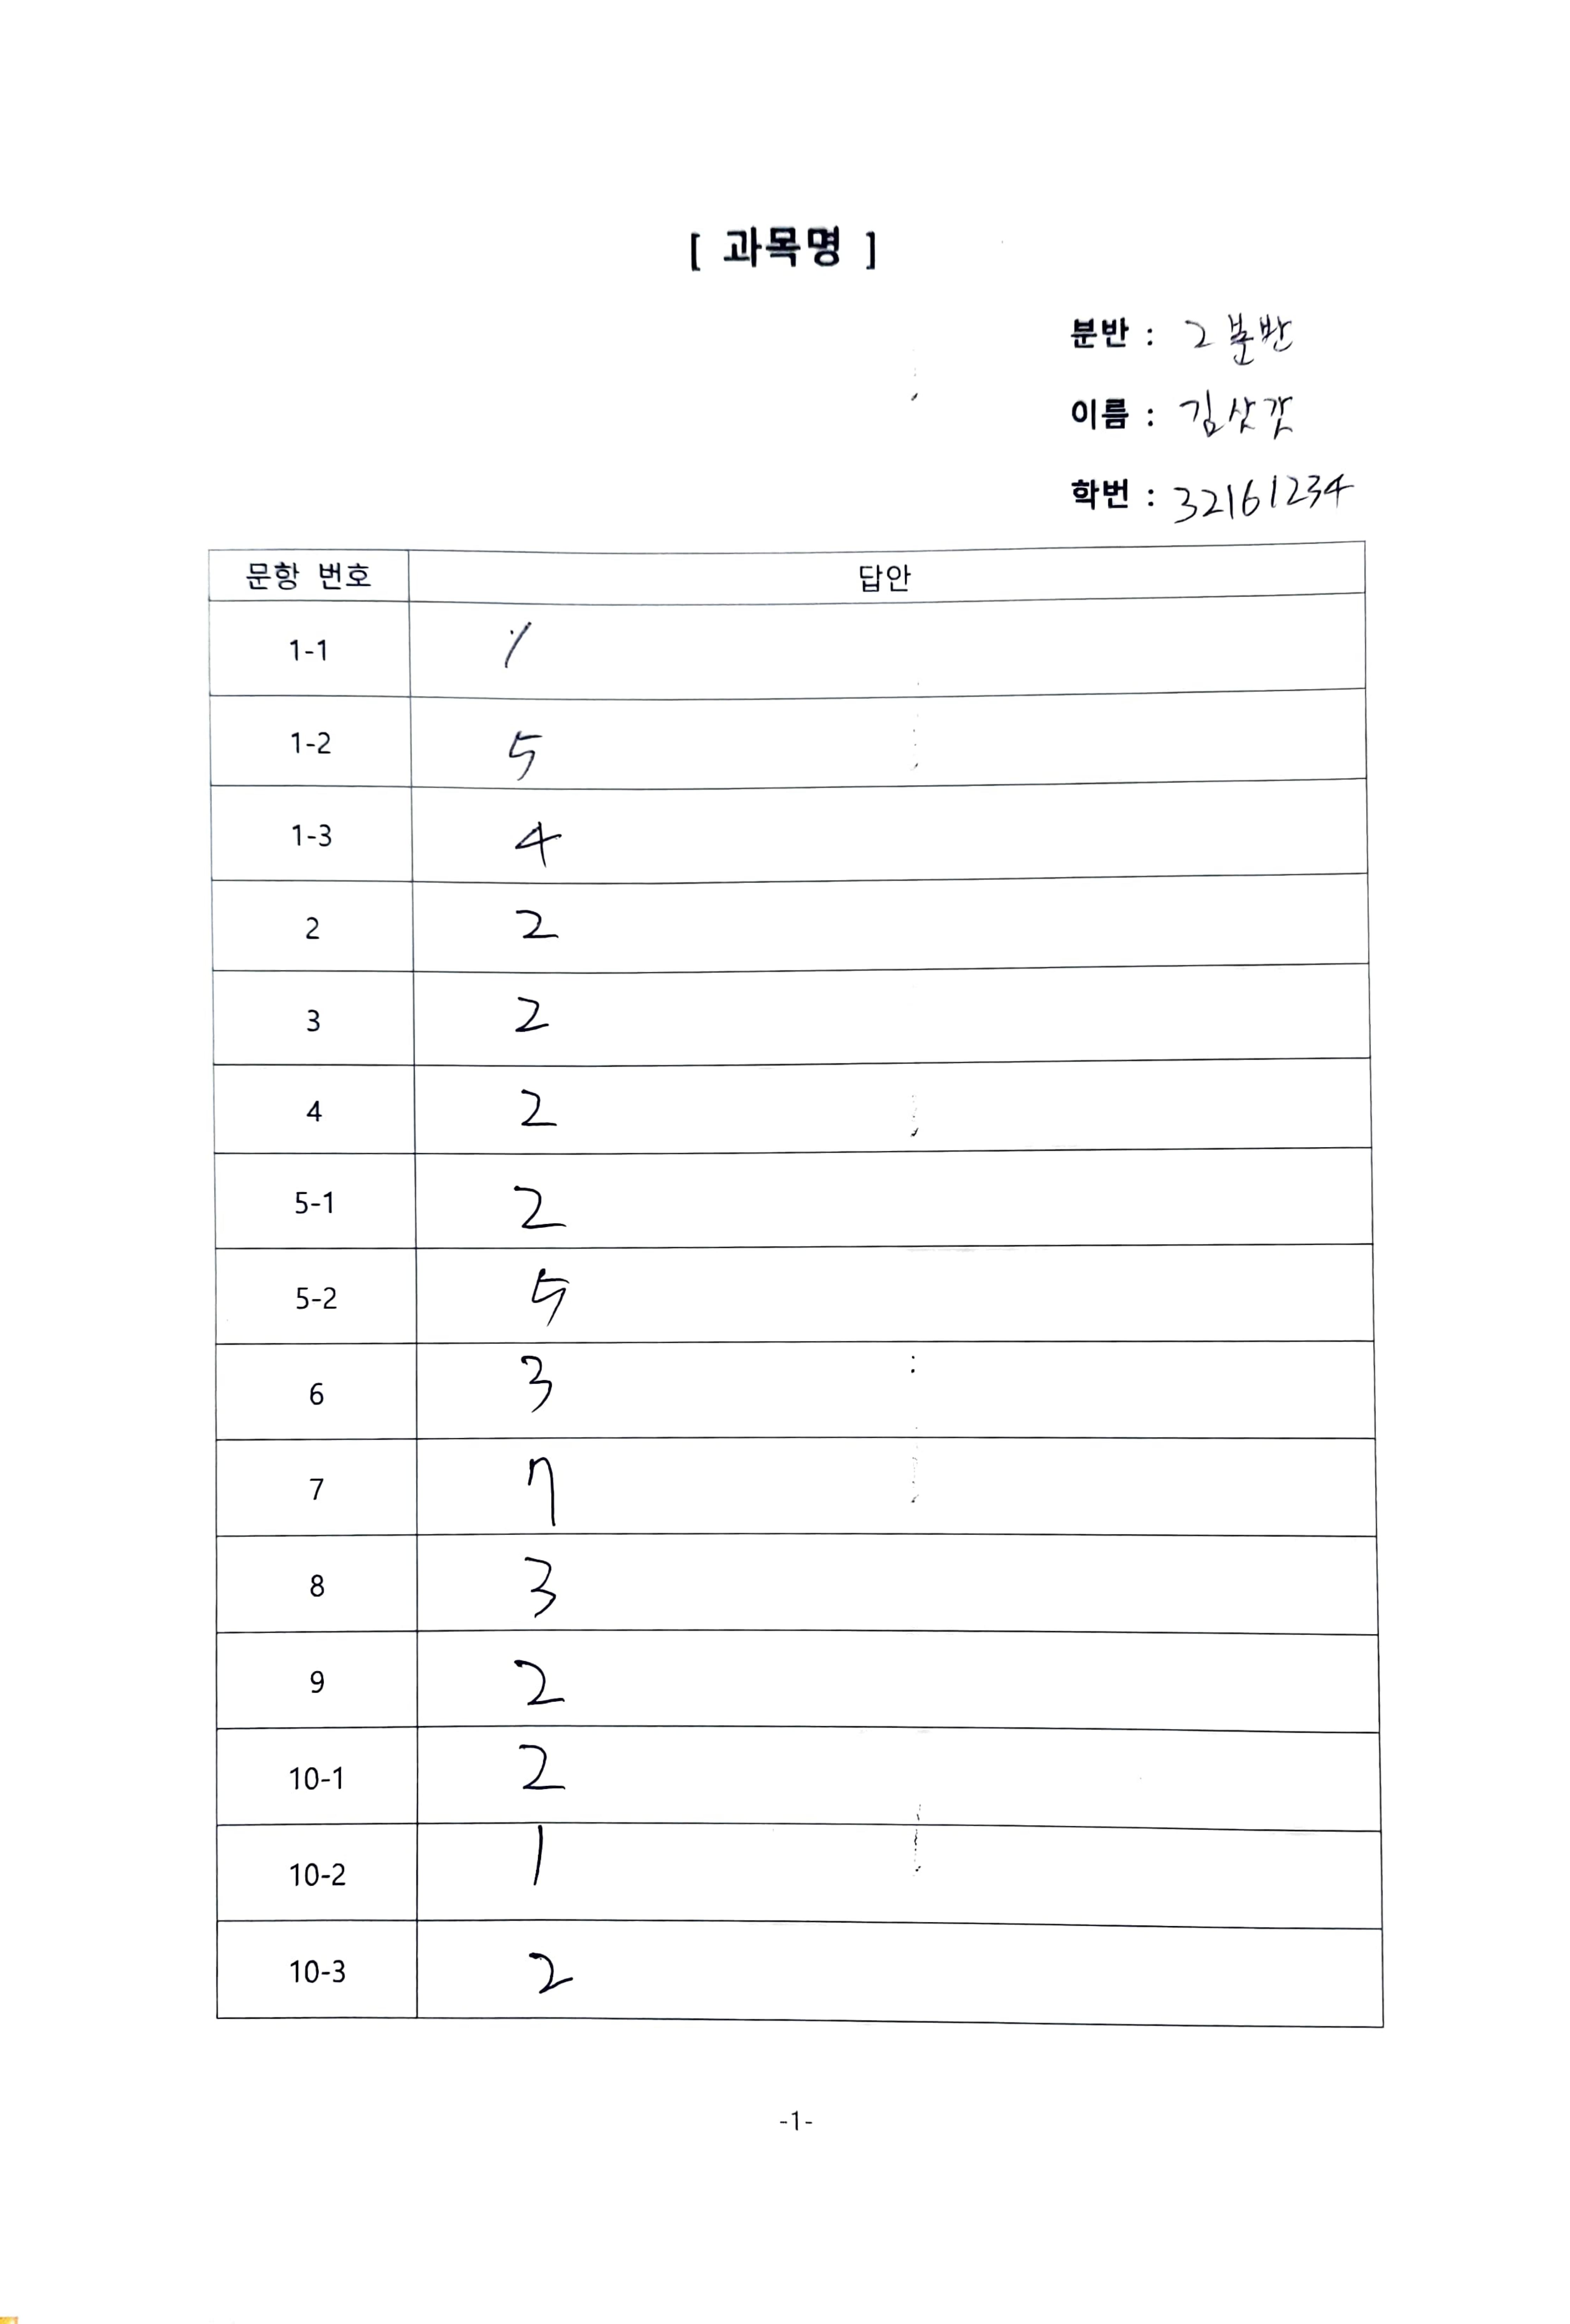 [ 과목명 ]
분반 : 2분반
이름 : 김삿갓
학번 : 32161234
문항 번호 답안
1-1 1
1-2 5
1-3 4
2 2
3 2
4 2
5-1 2
5-2 5
6 3
7 7
8 3
9 2
10-1 2
10-2 1
10-3 2
-1-